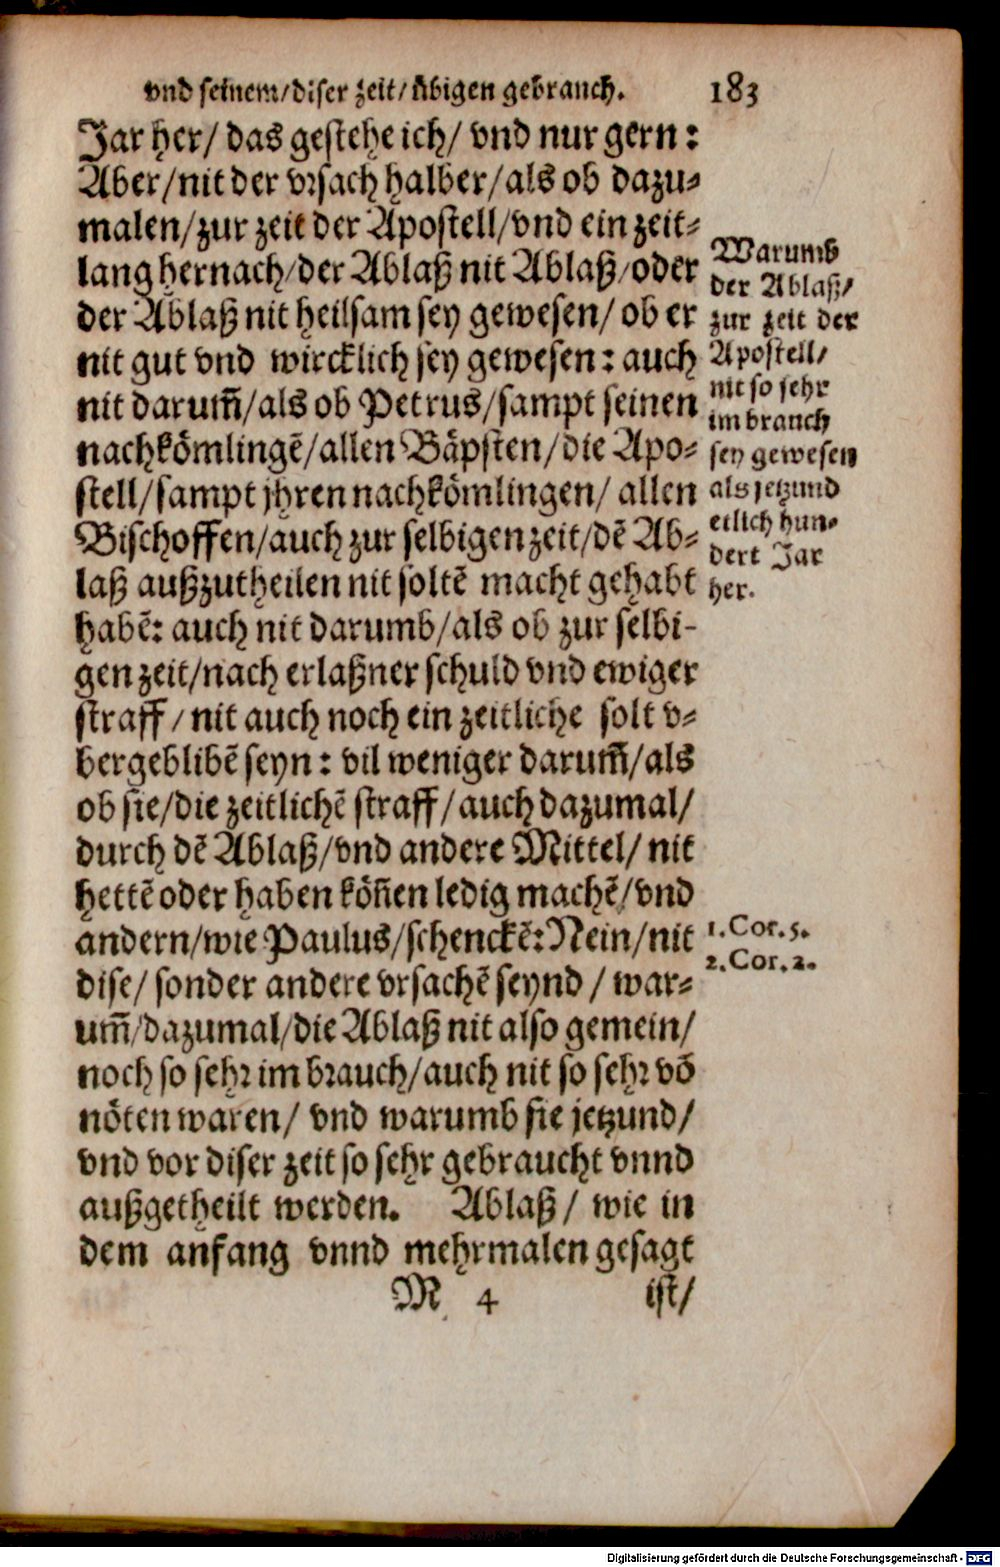 vnd seinem/diser zeit/übigen gebrauch. 183
Jar her/ das gestehe ich/ vnd nur gern:
Aber/nit der vrsach halber/als ob dazu⸗
malen/zur zeit der Apostell/vnd ein zeit⸗
lang hernach/der Ablaß nit Ablaß/oder
der Ablaß nit heilsam sey gewesen/ ob er
nit gut vnd wircklich sey gewesen: auch
nit darum̃/als ob Petrus/sampt seinen
nachkömlingẽ/allen Bäpsten/die Apo⸗
stell/sampt jhren nachkömlingen/ allen
Bischoffen/auch zur selbigen zeit/dẽ Ab⸗
laß außzutheilen nit soltẽ macht gehabt
habẽ: auch nit darumb/als ob zur selbi-
gen zeit/nach erlaßner schuld vnd ewiger
straff/nit auch noch ein zeitliche solt v⸗
bergeblibẽ seyn: vil weniger darum̃/als
ob sie/die zeitlichẽ straff/auch dazumal/
durch dẽ Ablaß/vnd andere Mittel/ nit
hettẽ oder haben köñen ledig machẽ/vnd
andern/wie Paulus/schenckẽ: Nein/nit
dise/ sonder andere vrsachẽ seynd / war⸗
um̃/dazumal/die Ablaß nit also gemein/
noch so sehr im brauch/auch nit so sehr võ
nöten waren/ vnd warumb sie jetzund/
vnd vor diser zeit so sehr gebraucht vnnd
außgetheilt werden. Ablaß/ wie in
dem anfang vnnd mehrmalen gesagt
M 4 ist/
Warumb
der Ablaß/
zur zeit der
Apostell/
nit so sehr
im brauch
sey gewesen
als jetzund
etlich hun⸗
dert Jar
her.
1.Cor.5.
2.Cor.2.
Digitalisierung gefördert durch die Deutsche Forschungsgemeinschaft - DFG